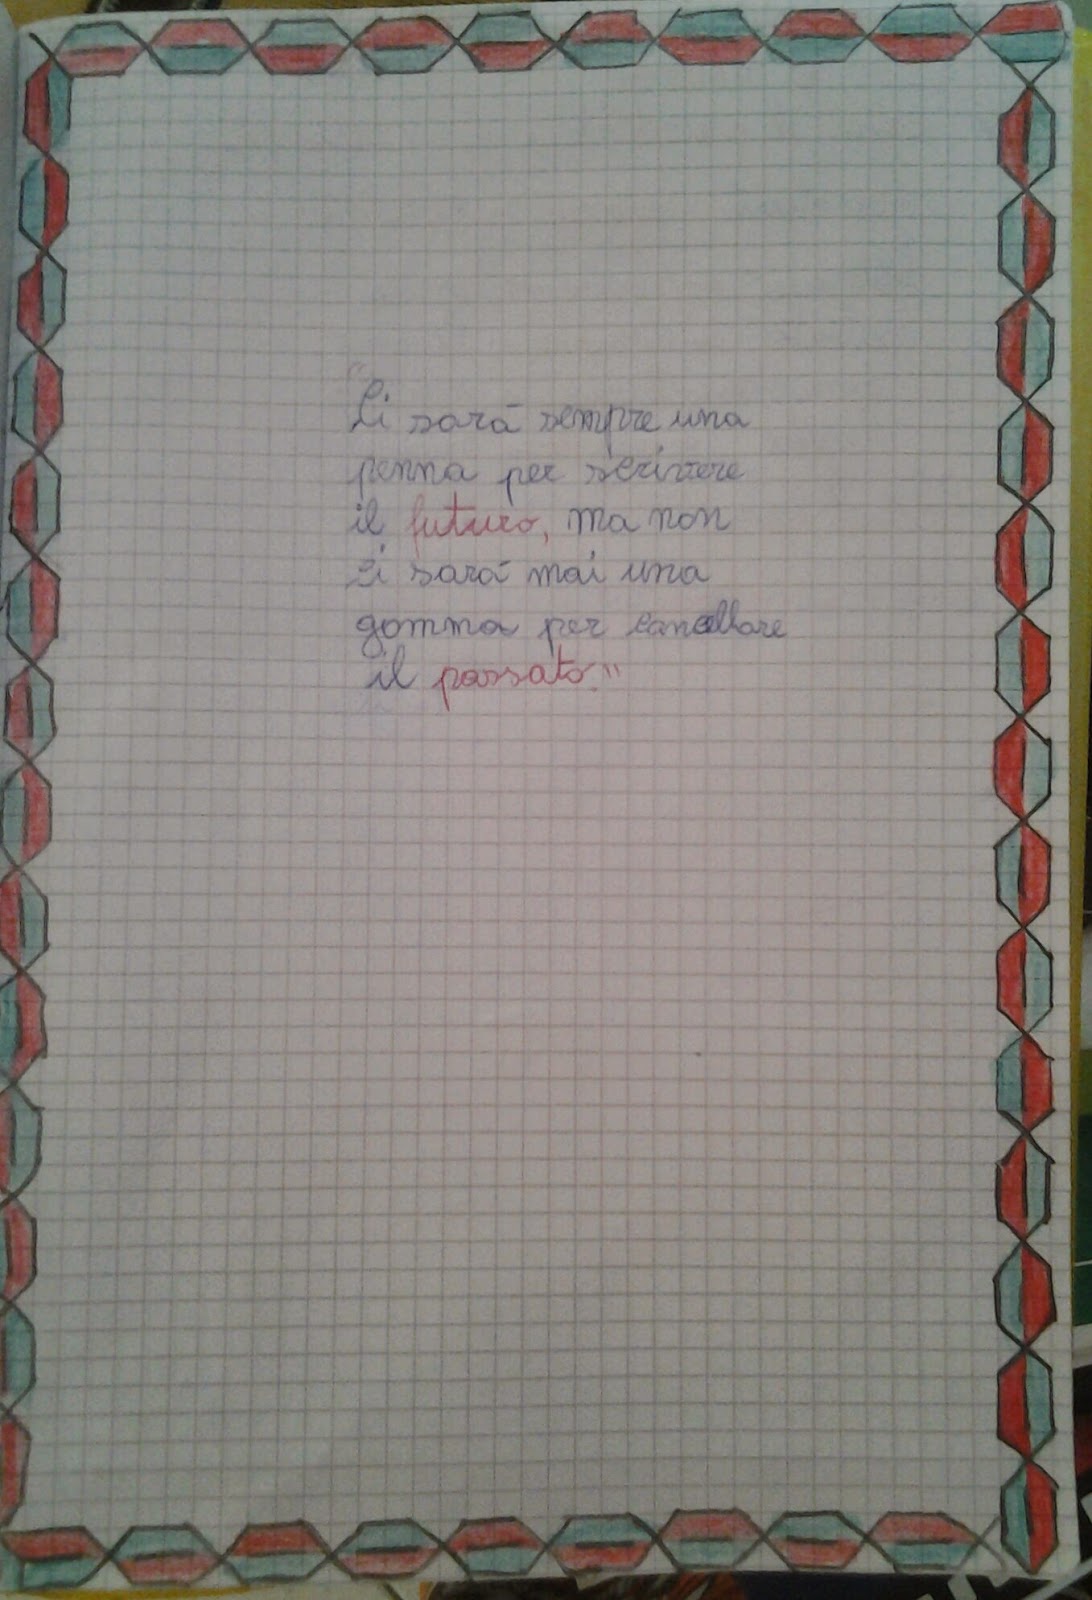 "Ci sarà sempre una
penna per scrivere
il futuro, ma non
ci sarà mai una
gomma per cancellare
il passato."